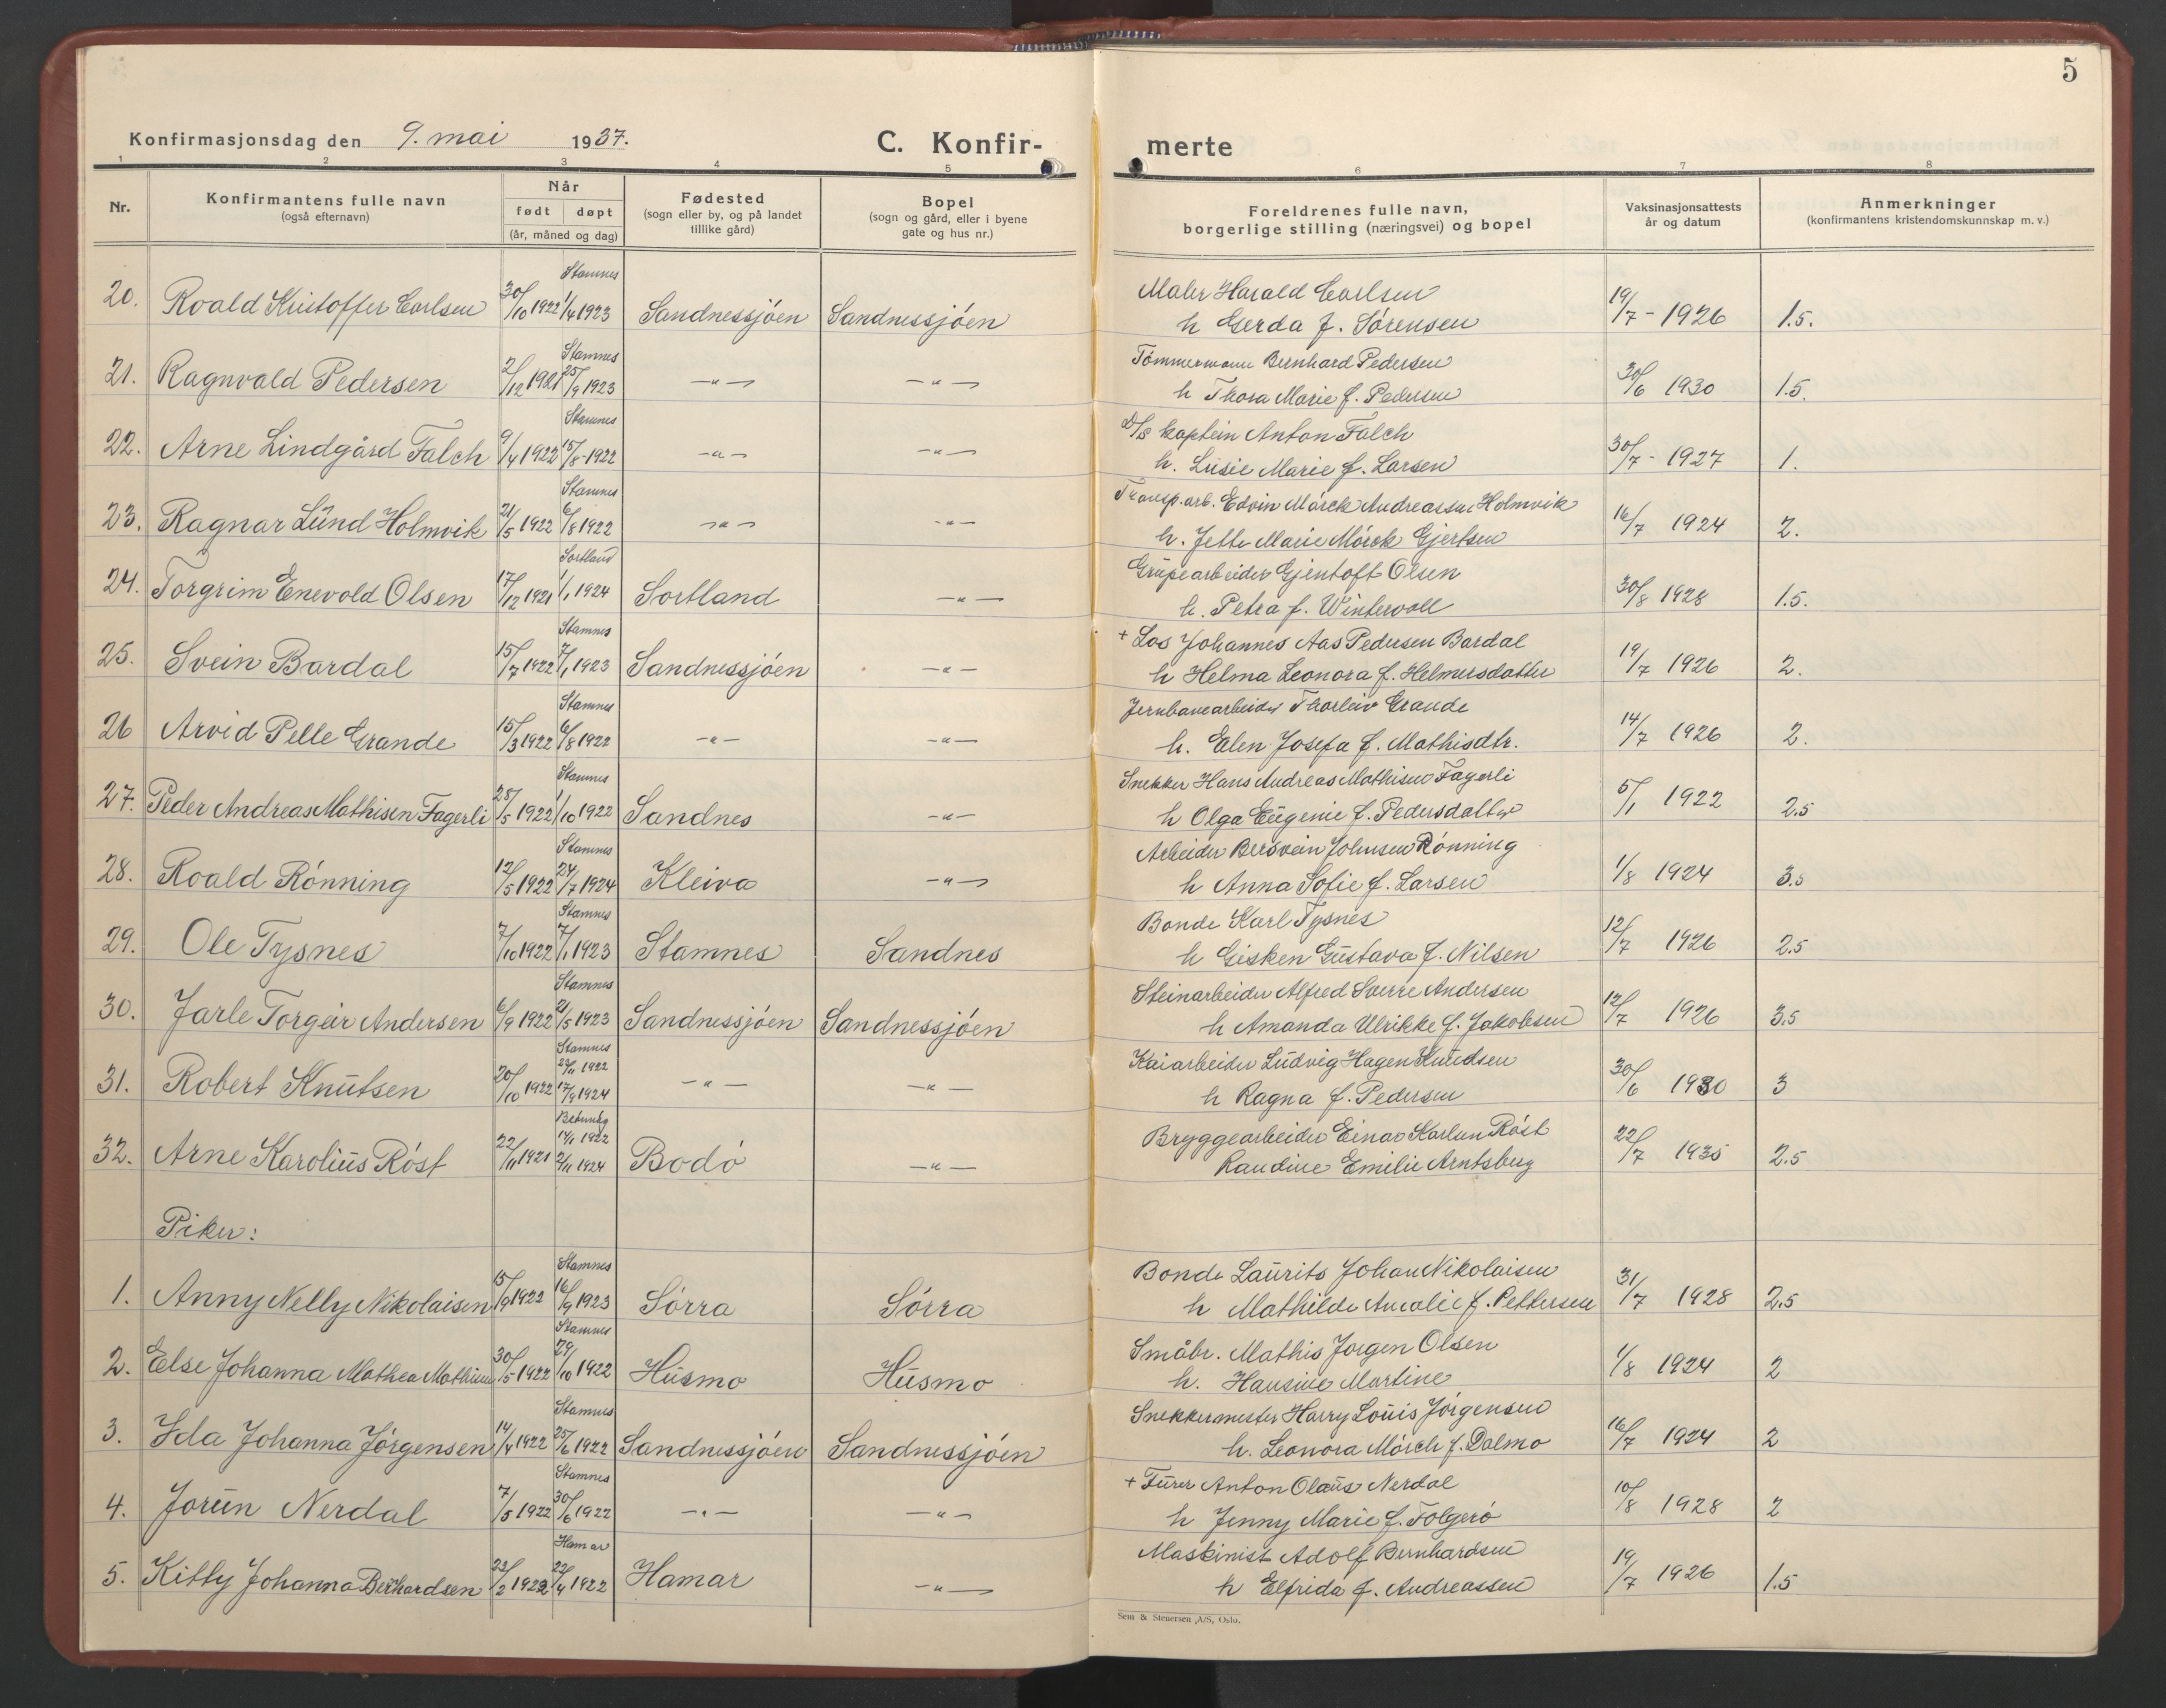 5
Konfirmasjonsdag den 9. mai 1937.
C. Konfir-
merte
1 2 3 4 5 6 7 8
Nr.
Konfirmantens fulle navn
(også efternavn)
Når
født døpt
(år, måned og dag)
Fødested
(sogn eller by, og på landet
tillike gård)
Bopel
(sogn og gård, eller i byene
gate og hus nr.)
Foreldrenes fulle navn,
borgerlige stilling (næringsvei) og bopel
Vaksinasjonsattests
år og datum
Anmerkninger
(konfirmantens kristendomskunnskap m. v.)
Stamnes
Maler Harald Carlsen
20. Roald Kristoffer Carlsen 30/10 1922 1/4 1923 Sandnessjøen Sandnessjøen h Gerda f. Sørensen 19/7 - 1926 1.5.
Stamnes
Tømmermann Bernhard Pedersen
21. Ragnvald Pedersen 2/12 1921 25/9 1923 -"- -"- h Thora Marie f. Pedersen 30/6 1930 1.5.
Stamnes
D/S kaptein Anton Falch
22. Arne Lindgård Falch 9/4 1922 15/8-1922 -"- -"- h. Lusie Marie f. Larsen 30/7 - 1927 1.
Stamnes
Transp.arb. Edvin Mørck Andreassen Holmvik
23. Ragnar Lund Holmvik 21/5 1922 6/8 1922 -"- -"- h. Jette Marie Mørck Gjertsen 16/7 1924 2.
Sortland
Grupearbeider Gjentoft Olsen
24. Torgrim Enevold Olsen 17/12 1921 1/1 1924 Sortland -"- h. Petra f. Wintervoll 30/8 1928 1.5.
Stamnes
+ Los Johannes Aas Pedersen Bardal
25. Svein Bardal 15/7 1922 7/1 1923 Sandnessjøen -"- h Helma Leonora f. Helmersdatter 19/7 1926 2.
Stamnes
Jernbanearbeider Thorleiv Grande
26 Arvid Pelle Grande 15/3 1922 6/8 1922 -"- -"- h. Elen Josefa f. Mathisdtr. 14/7 1926 2.
Stamnes
Snekker Hans Andreas Mathisen Fagerli
27. Peder Andreas Mathisen Fagerli 28/5 1922 1/10 1922 Sandnes -"- h Olga Eugenie f. Pedersdatter 5/1 1922 2.5
Stamnes
Arbeider Bersvein Johnsen Rønning
28. Roald Rønning 12/5 1922 24/7 1924 Kleiva -"- h Anna Sofie f. Larsen 1/8 1924 3.5
Stamnes
Bonde Karl Tysnes
29. Ole Tysnes 7/10 1922 7/1 1923 Stamnes Sandnes h Gisken Gustava f. Nilsen 12/7 1926 2.5
Stamnes
Steinarbeider Alfred Sverre Andersen
30. Jarle Torgeir Andersen 6/9 1922 21/5 1923 Sandnessjøen Sandnessjøen h Amanda Ulrikke f. Jakobsen 12/7 1926 3.5
Stamnes
1922
Kaiarbeider Ludvig Hagen Knudsen
31. Robert Knutsen 20/10 1922 17/9 1924 -"- -"- h Ragna f. Pedersen 30/6 1930 3
1922
Bryggearbeider Einar Karlsen Røst
32. Arne Karolius Røst 22/11 1921 2/11 1924 Bodø -"- Randine Emilie Arntsberg 22/7 1935 2.5
Piker:
Stamnes
Bonde Laurits Johan Nikolaisen
1. Anny Nelly Nikolaisen 15/9 1922 16/9 1923 Sørra Sørra h Mathilde Amalie f. Pettersen 31/7 1928 2.5
Stamnes
Småbr. Mathis Jørgen Olsen
2. Else Johanna Mathea Mathisen 30/5 1922 29/10 1922 Husmo Husmo h. Hansine Martine 1/8 1924 2
Stamnes
Snekkermester Harry Louis Jørgensen
3. Ida Johanna Jørgensen 14/4 1922 25/6 1922 Sandnessjøen Sandnessjøen h. Leonora Mørch f. Dalmo 16/7 1924 2
Stamnes
+ Furer Anton Olaus Nerdal
4. Jorun Nerdal 7/5 1922 30/6 1922 -"- -"- h Jenny Marie f. Folgerø 10/8 1928 2
Hamar
Maskinist Adolf Bernhardsen
5. Kitty Johanna Bernhardsen 22/2 1922 22/4 1922 Hamar -"- h Elfrida f. Andreassen 19/7 1926 1.5
Sem & Stenersen A/S, Oslo.